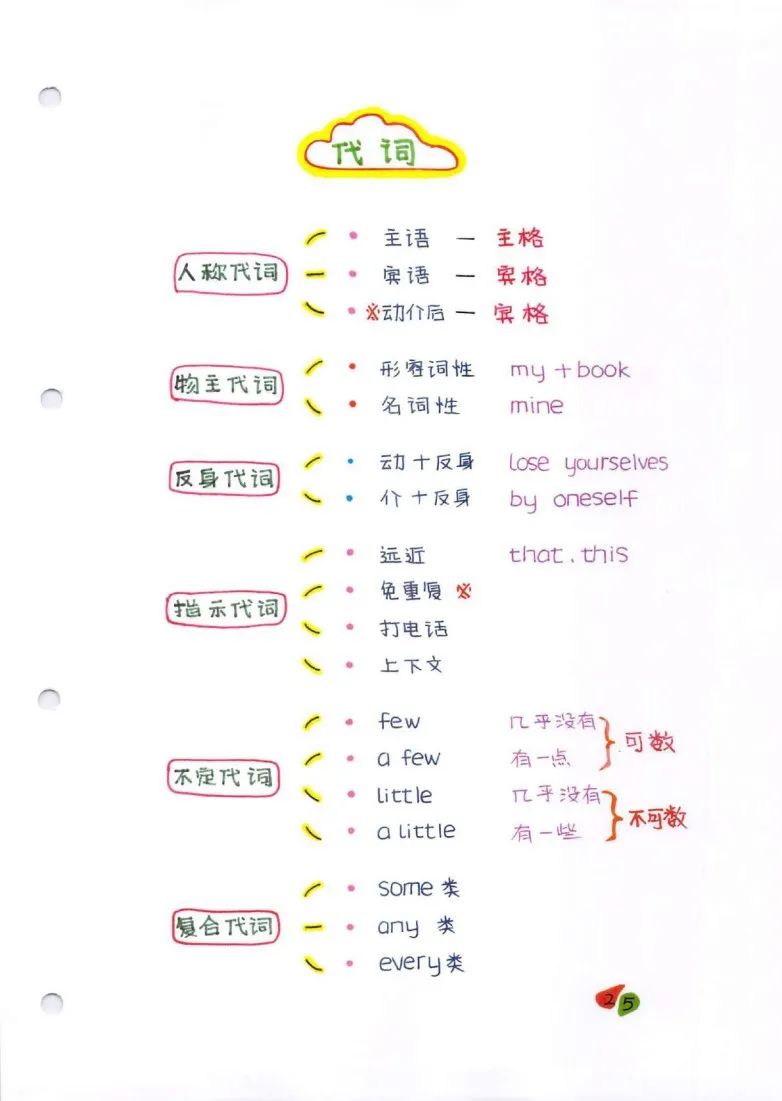 代词
人称代词
主语 — 主格
宾语 — 宾格
※动介后 — 宾格
物主代词
形容词性 my + book
名词性 mine
反身代词
动 + 反身 lose yourselves
介 + 反身 by oneself
指示代词
远近 that . this
免重复 ※
打电话
上下文
不定代词
few 几乎没有
a few 有一点
可数
little 几乎没有
a little 有一些
不可数
复合代词
some 类
any 类
every 类
25